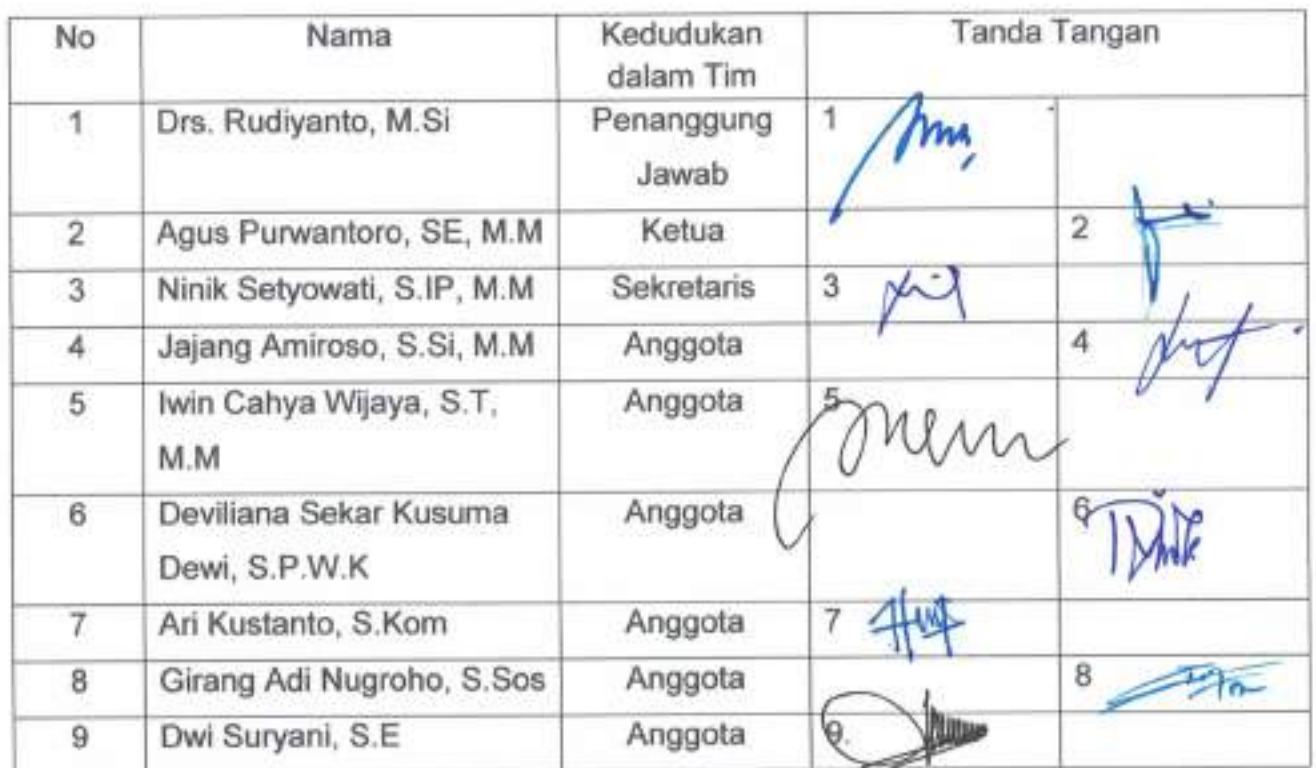 No Nama Kedudukan dalam Tim Tanda Tangan
1 Drs. Rudiyanto, M.Si Penanggung Jawab 1
2 Agus Purwantoro, SE, M.M Ketua 2
3 Ninik Setyowati, S.IP, M.M Sekretaris 3
4 Jajang Amiroso, S.Si, M.M Anggota 4
5 Iwin Cahya Wijaya, S.T, Anggota 5
M.M
6 Deviliana Sekar Kusuma Anggota 6
Dewi, S.P.W.K
7 Ari Kustanto, S.Kom Anggota 7
8 Girang Adi Nugroho, S.Sos Anggota 8
9 Dwi Suryani, S.E Anggota 9.